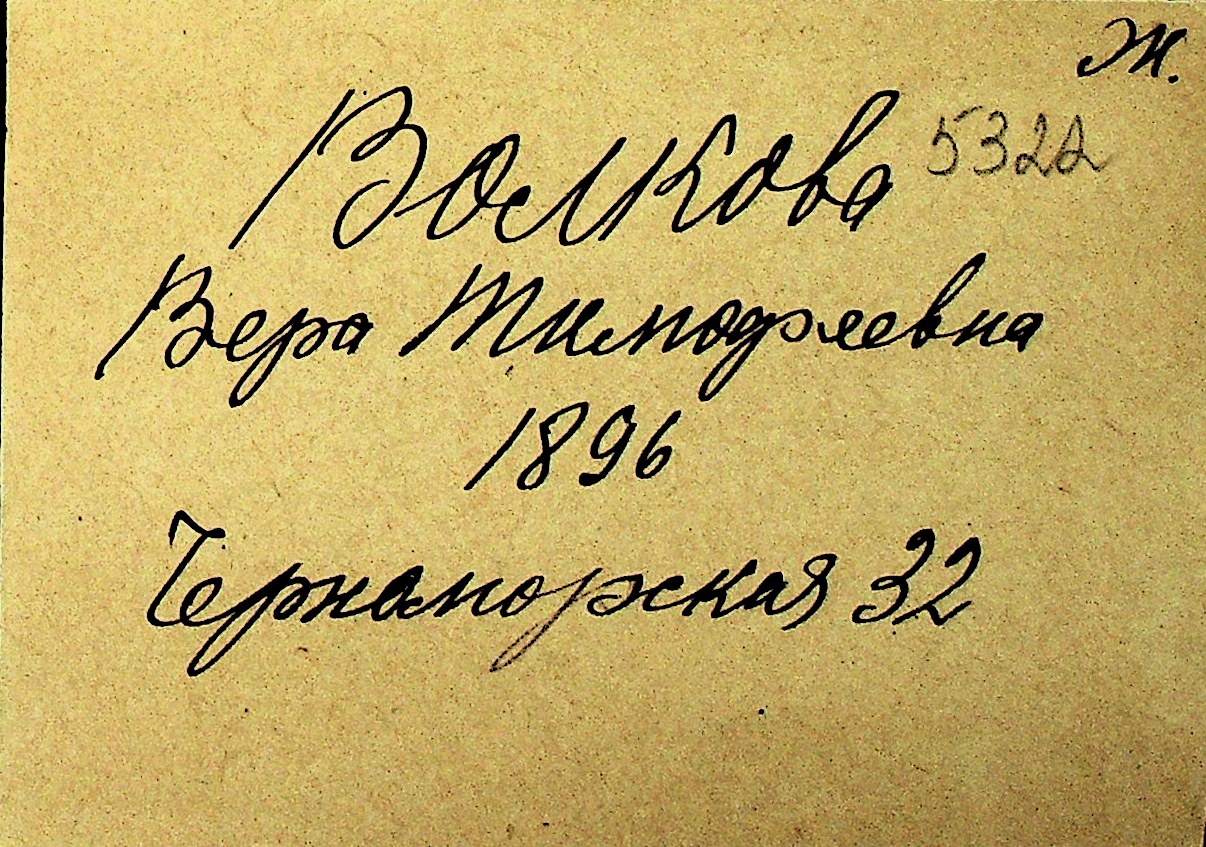 Ж.
Волкова 5322
Вера Тимофеевна
1896
Черноморская 32